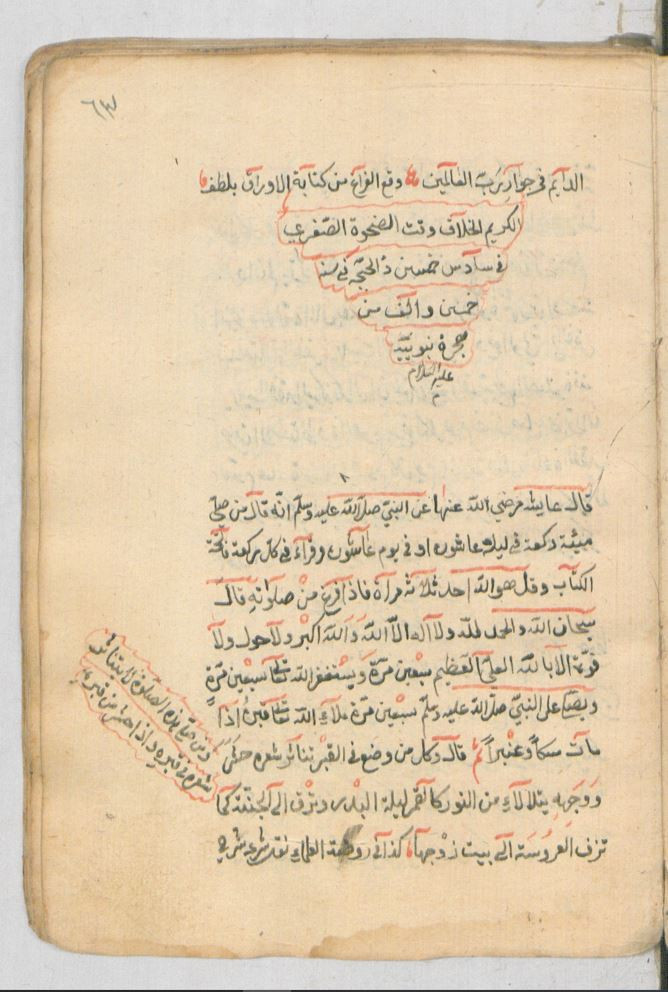 ٦٣
الدايم في جوار رب العالمين وقع الفراغ من كتابة الاوراق بلطف
الكريم الخلاق وقت الضحوة الصغرى
في سادس خمسين ذالحجه في سنه
خمسين والف من
هجرة نبوييه
عليه السلام
قال عايشه رضي الله عنها عن النبي صلى الله عليه وسلم انه قال من صلى
مئة ركعة في ليلة عاشورا او في يوم عاشورا وقراء في كل ركعة فاتحة
الكتاب وقل هو الله احد ثلاثة مرآة فاذا فرغ من صلوته قال
سبحان الله والحمد لله ولا اله الا الله والله اكبر ولا حول ولا
قوة الا بالله العلي العظيم سبعين مرة ويستغفر الله تعالى سبعين مرة
ويصلى على النبي صلى الله عليه وسلم سبعين مرة ملاء الله تعالى قبره اذا
مات مسكاً وعنبراً ثم قال وكل من وضع في القبر يتناثر شعره حتى
ووجهه يتلالاء من النور كالقمر ليلة البدر وتزف الى الجنة كما
تزف العروسة الى بيت زوجها كذا في روضة العلماء
ومن صلى هذه الصلوة لا يتناثر
شعره في قبره واذا حشر من قبره